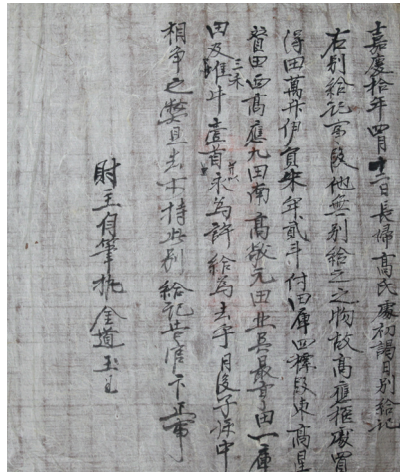 嘉慶拾年四月十二日長婦高氏處初謁日別給記
右別給記事段他無別給之物故高應樞處買
得田萬丹伊員朱年貳斗付田庫四標段東高呈
贊田西高應九田南高敬元田北吳最才田一庫
田及雌牛壹首永爲許給爲去乎日後子孫中
三禾
相爭之弊是去等持此別給記告官卞正事
財主自筆執金道玉